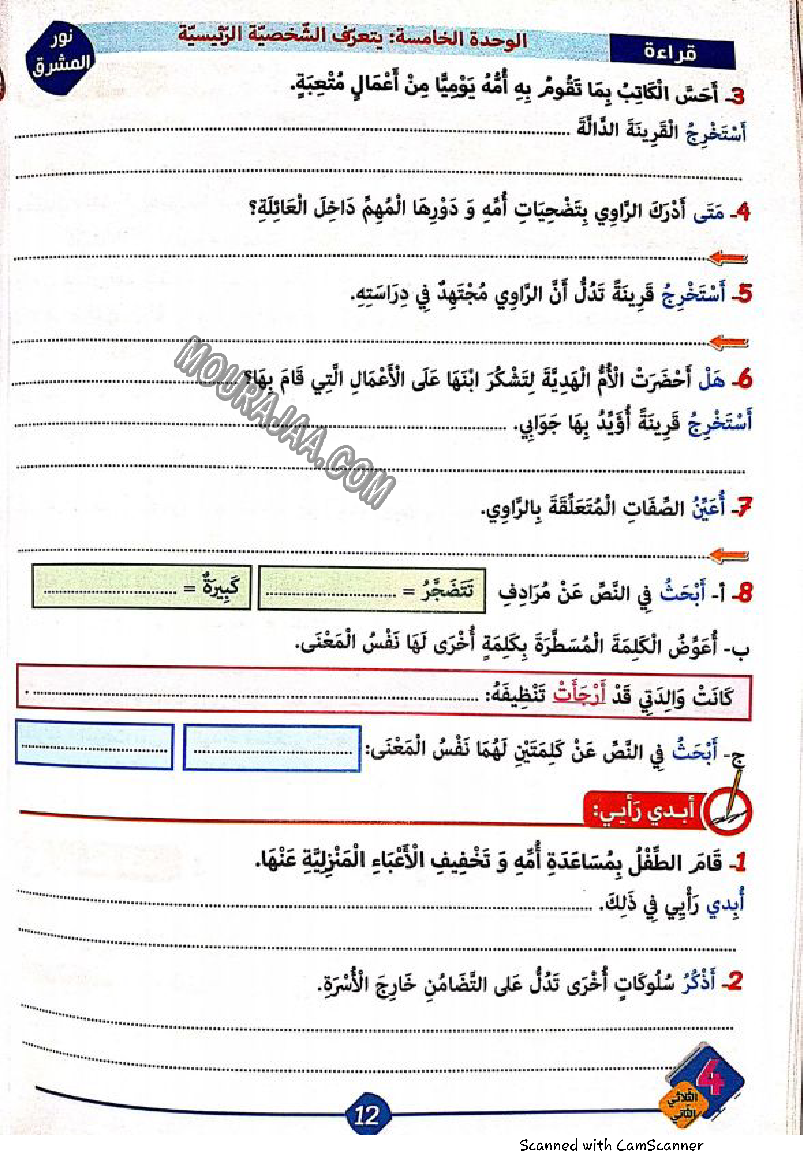 نور المشرق
الوحدة الخامسة: يتعرّف الشّخصيّة الرّئيسيّة
قراءة
3- أَحَسَّ الْكَاتِبُ بِمَا تَقُومُ بِهِ أُمُّهُ يَوْمِيًّا مِنْ أَعْمَالٍ مُتْعِبَةٍ.
أَسْتَخْرِجُ الْقَرِينَةَ الدَّالَّةَ
4- مَتَى أَدْرَكَ الرَّاوِي بِتَضْحِيَاتِ أُمِّهِ وَ دَوْرِهَا الْمُهِمِّ دَاخِلَ الْعَائِلَةِ؟
5- أَسْتَخْرِجُ قَرِينَةً تَدُلُّ أَنَّ الرَّاوِي مُجْتَهِدٌ فِي دِرَاسَتِهِ.
6- هَلْ أَحْضَرَتْ الْأُمُّ الْهَدِيَّةَ لِتَشْكُرَ ابْنَهَا عَلَى الْأَعْمَالِ الَّتِي قَامَ بِهَا؟
أَسْتَخْرِجُ قَرِينَةً أُؤَيِّدُ بِهَا جَوَابِي.
MOURAJAA.COM
7- أُعَيِّنُ الصِّفَاتِ الْمُتَعَلِّقَةَ بِالرَّاوِي.
8- أ- أَبْحَثُ فِي النَّصِّ عَنْ مُرَادِفِ تَتَضَجَّرُ = كَبِيرَةٌ =
ب- أُعَوِّضُ الْكَلِمَةَ الْمُسَطَّرَةَ بِكَلِمَةٍ أُخْرَى لَهَا نَفْسُ الْمَعْنَى.
كَانَتْ وَالِدَتِي قَدْ أَرْجَأَتْ تَنْظِيفَهُ:
ج- أَبْحَثُ فِي النَّصِّ عَنْ كَلِمَتَيْنِ لَهُمَا نَفْسُ الْمَعْنَى:
أبدي رَأيي:
1- قَامَ الطِّفْلُ بِمُسَاعَدَةِ أُمِّهِ وَ تَخْفِيفِ الْأَعْبَاءِ الْمَنْزِلِيَّةِ عَنْهَا.
أُبْدِي رَأْيِي فِي ذَلِكَ.
2- أَذْكُرُ سُلُوكَاتٍ أُخْرَى تَدُلُّ عَلَى التَّضَامُنِ خَارِجَ الْأُسْرَةِ.
4
الثلاثي الثاني
12
Scanned with CamScanner